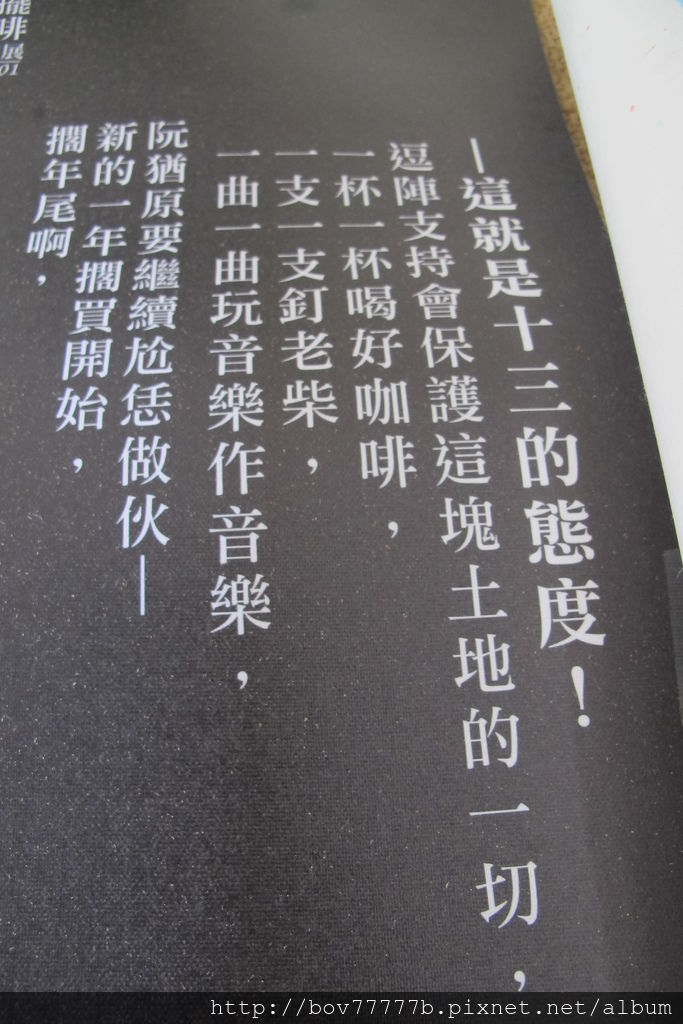 啡展01
擱年尾啊，
新的一年擱買開始，
阮猶原要繼續尬恁做伙—
一曲一曲玩音樂作音樂，
一支一支釘老柴，
一杯一杯喝好咖啡，
逗陣支持會保護這塊土地的一切，
—這就是十三的態度！
http://bov77777b.pixnet.net/album